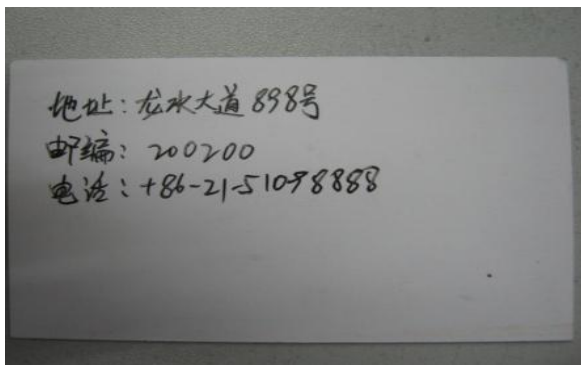 地址：龙水大道898号
邮编：200200
电话：+86-21-51098888